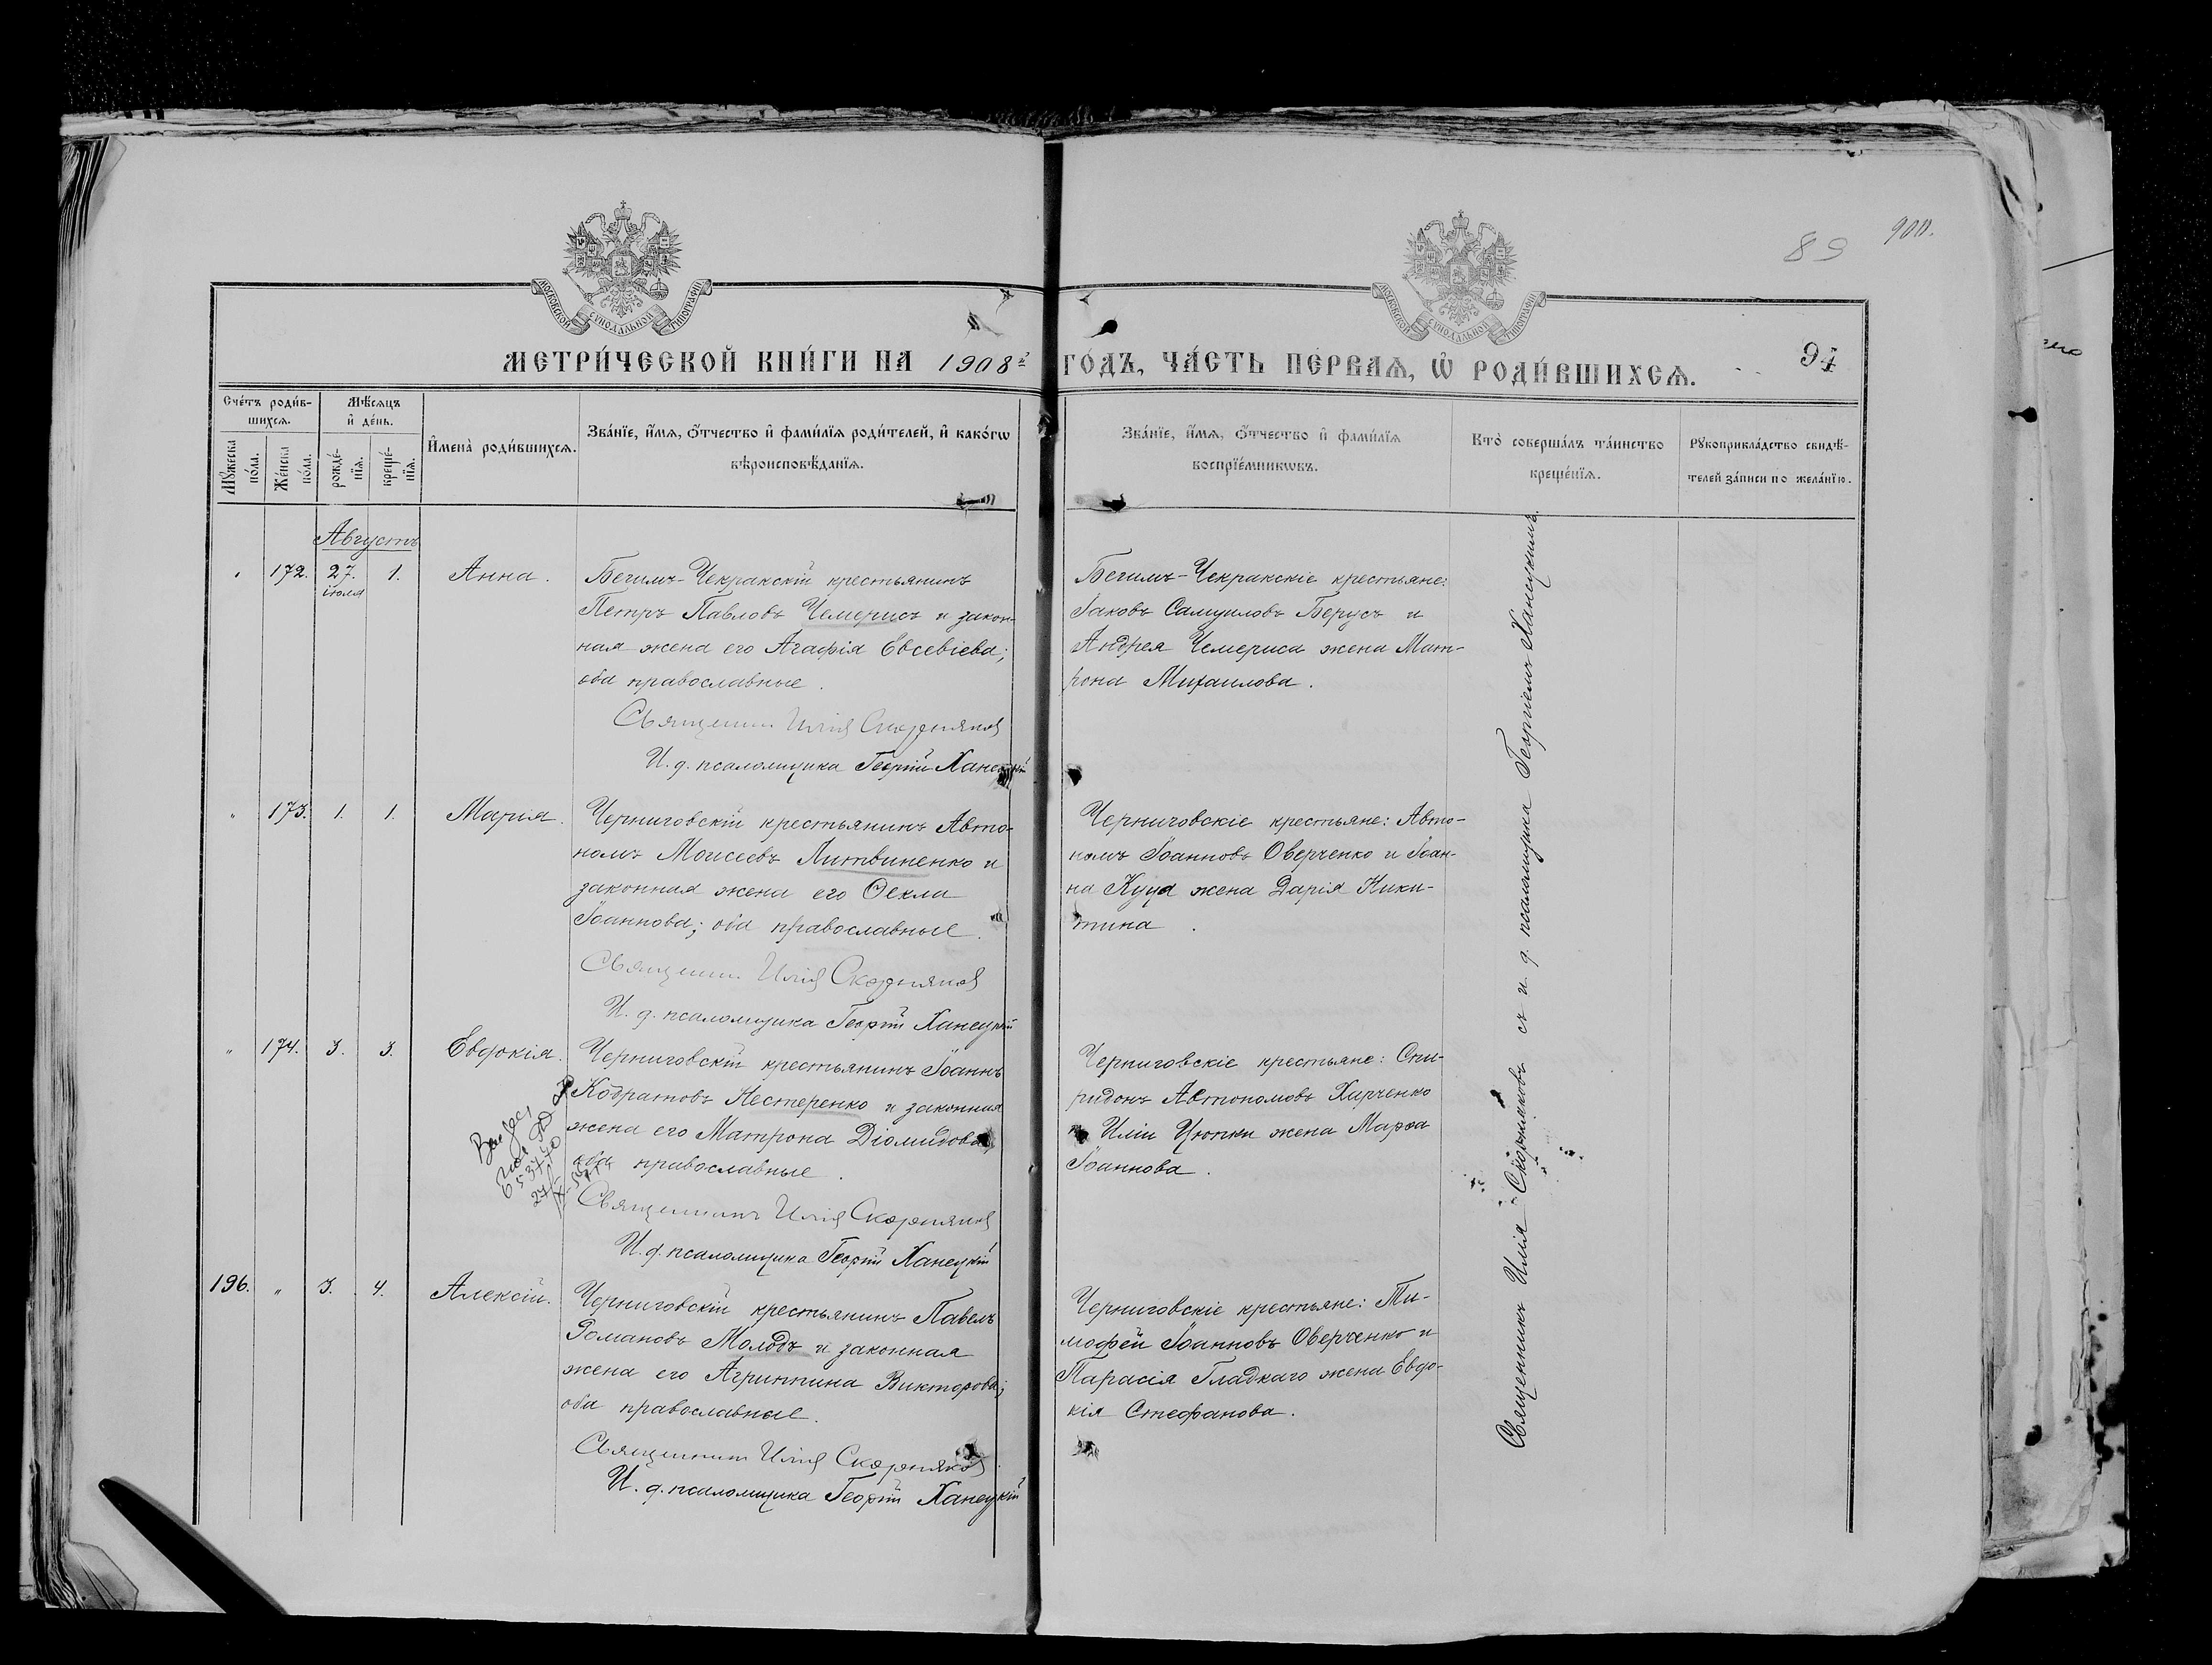 900.
89
МОСКОВСКОЙ СѴНОДАЛЬНОЙ ТИПОГРАФІИ
МОСКОВСКОЙ СѴНОДАЛЬНОЙ ТИПОГРАФІИ
МЕТРИ́ЧЕСКОЙ КНИ́ГИ НА 1908 г. ГО́ДЪ, ЧА́СТЬ ПЕ́РВАѦ, Ѡ҆ РОДИ́ВШИХСѦ. 94
Сче́тъ роди́в-
шихсѧ.
Мꙋ́жеска
по́ла.
Же́нска
по́ла.
Мѣ́сѧцъ
и҆ де́нь.
рожде́-
нїѧ.
креще́-
нїѧ.
И҆мена̀ роди́вшихсѧ.
Зва́нїе, и҆́мѧ, ѻ҆́тчество и҆ фами́лїѧ роди́телей, и҆ како́гѡ
вѣроисповѣ́данїѧ.
Зва́нїе, и҆́мѧ, ѻ҆́тчество и҆ фами́лїѧ
воспрїе́мникѡвъ.
Кто̀ соверша́лъ та́инство
креще́нїѧ.
Рꙋкоприкла́дство свидѣ́-
телей за́писи по жела́нїю.
Августъ
" 172. 27. 1. Анна.
іюля
Бегимъ-Чекракскій крестьянинъ
Петръ Павловъ Чемерисъ и закон-
ная жена его Агафія Евсевіева;
оба православные.
Священникъ Илія Скорняковъ
И. д. псаломщика Георгій Ханецкій
Бегимъ-Чекракскіе крестьяне:
Іаковъ Самуиловъ Берусъ и
Андрея Чемериса жена Мат-
рона Михаилова.
" 173. 1. 1. Марія.
Черниговскій крестьянинъ Авто-
номъ Моисеевъ Литвиненко и
законная жена его Ѳекла
Іоаннова; оба православные.
Священникъ Илія Скорняковъ
И. д. псаломщика Георгій Ханецкій
Черниговскіе крестьяне: Авто-
номъ Іоанновъ Оверченко и Іоан-
на Куца жена Дарія Ники-
тина.
" 174. 3. 3. Евдокія.
Черниговскій крестьянинъ Іоаннъ
Кодратовъ Нестеренко и законная
жена его Матрона Діомидова;
оба православные.
Священникъ Илія Скорняковъ
И. д. псаломщика Георгій Ханецкій
Черниговскіе крестьяне: Спи-
ридонъ Автономовъ Харченко
и Иліи Цюпки жена Марѳа
Іоаннова.
196. " 3. 4. Алексій.
Черниговскій крестьянинъ Павелъ
Романовъ Молодъ и законная
жена его Агриппина Викторова;
оба православные.
Священникъ Илія Скорняковъ
И. д. псаломщика Георгій Ханецкій
Черниговскіе крестьяне: Ти-
мофей Іоанновъ Оверченко и
Тарасія Гладкаго жена Евдо-
кія Стефанова.
Священникъ Илія Скорняковъ съ и. д. псаломщика Георгіемъ Ханецкимъ.